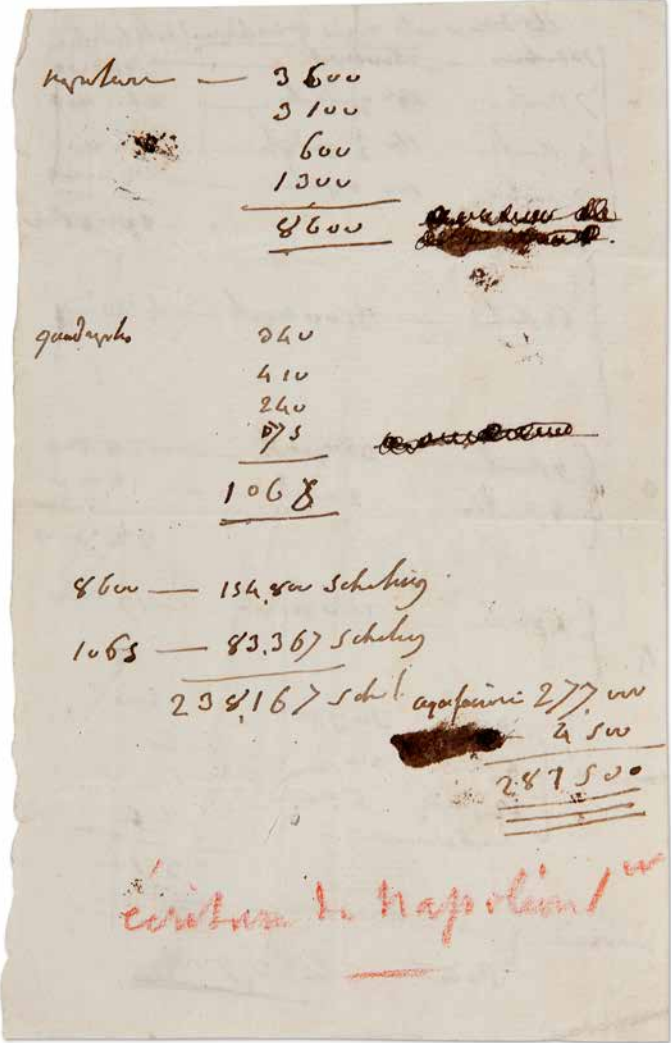 napoleons — 3600
3100
600
1300
8600
quadruples
340
410
240
75
1068
8600 — 154,800 Scheling
1065 — 83.367 Scheling
238,167 Schel 277,000
4 500
281 500
écriture de Napoléon 1er